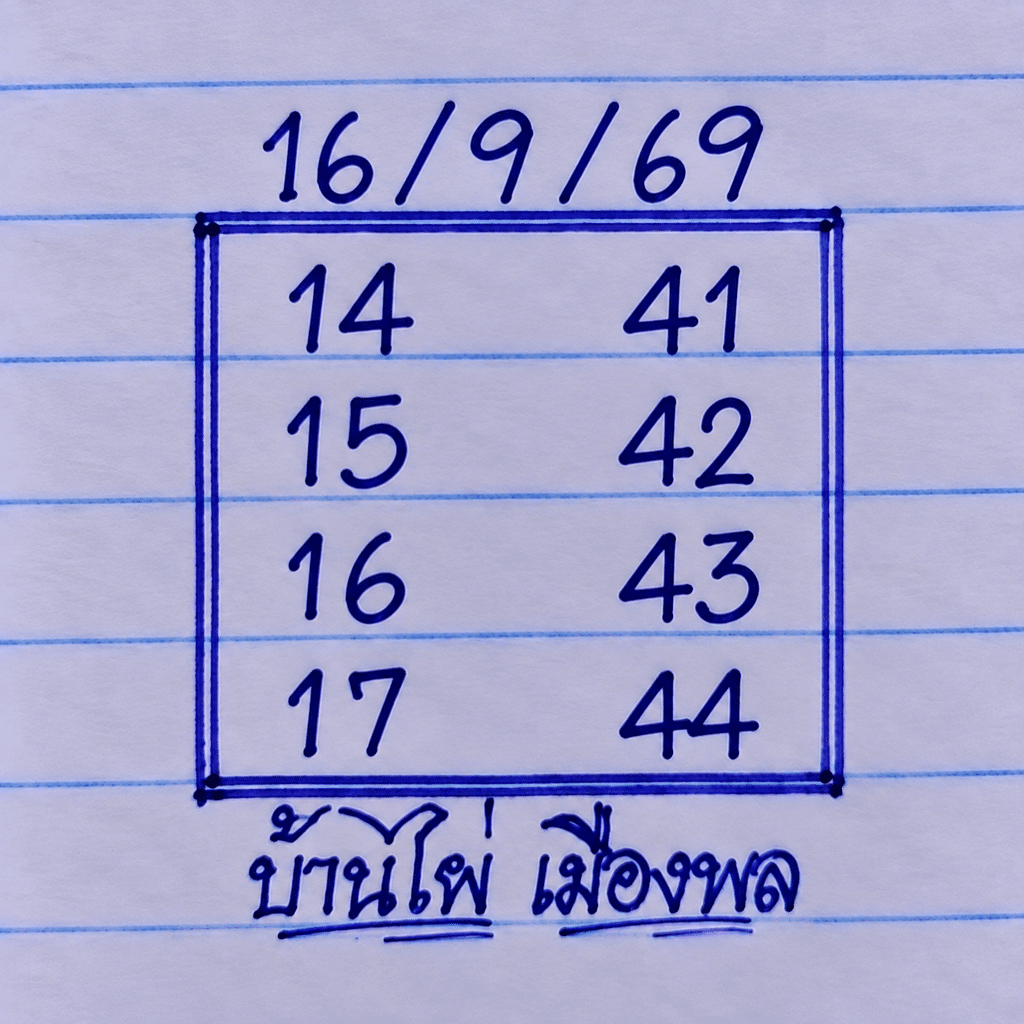 16/9/69
14 41
15 42
16 43
17 44
บ้านไผ่ เมืองพล